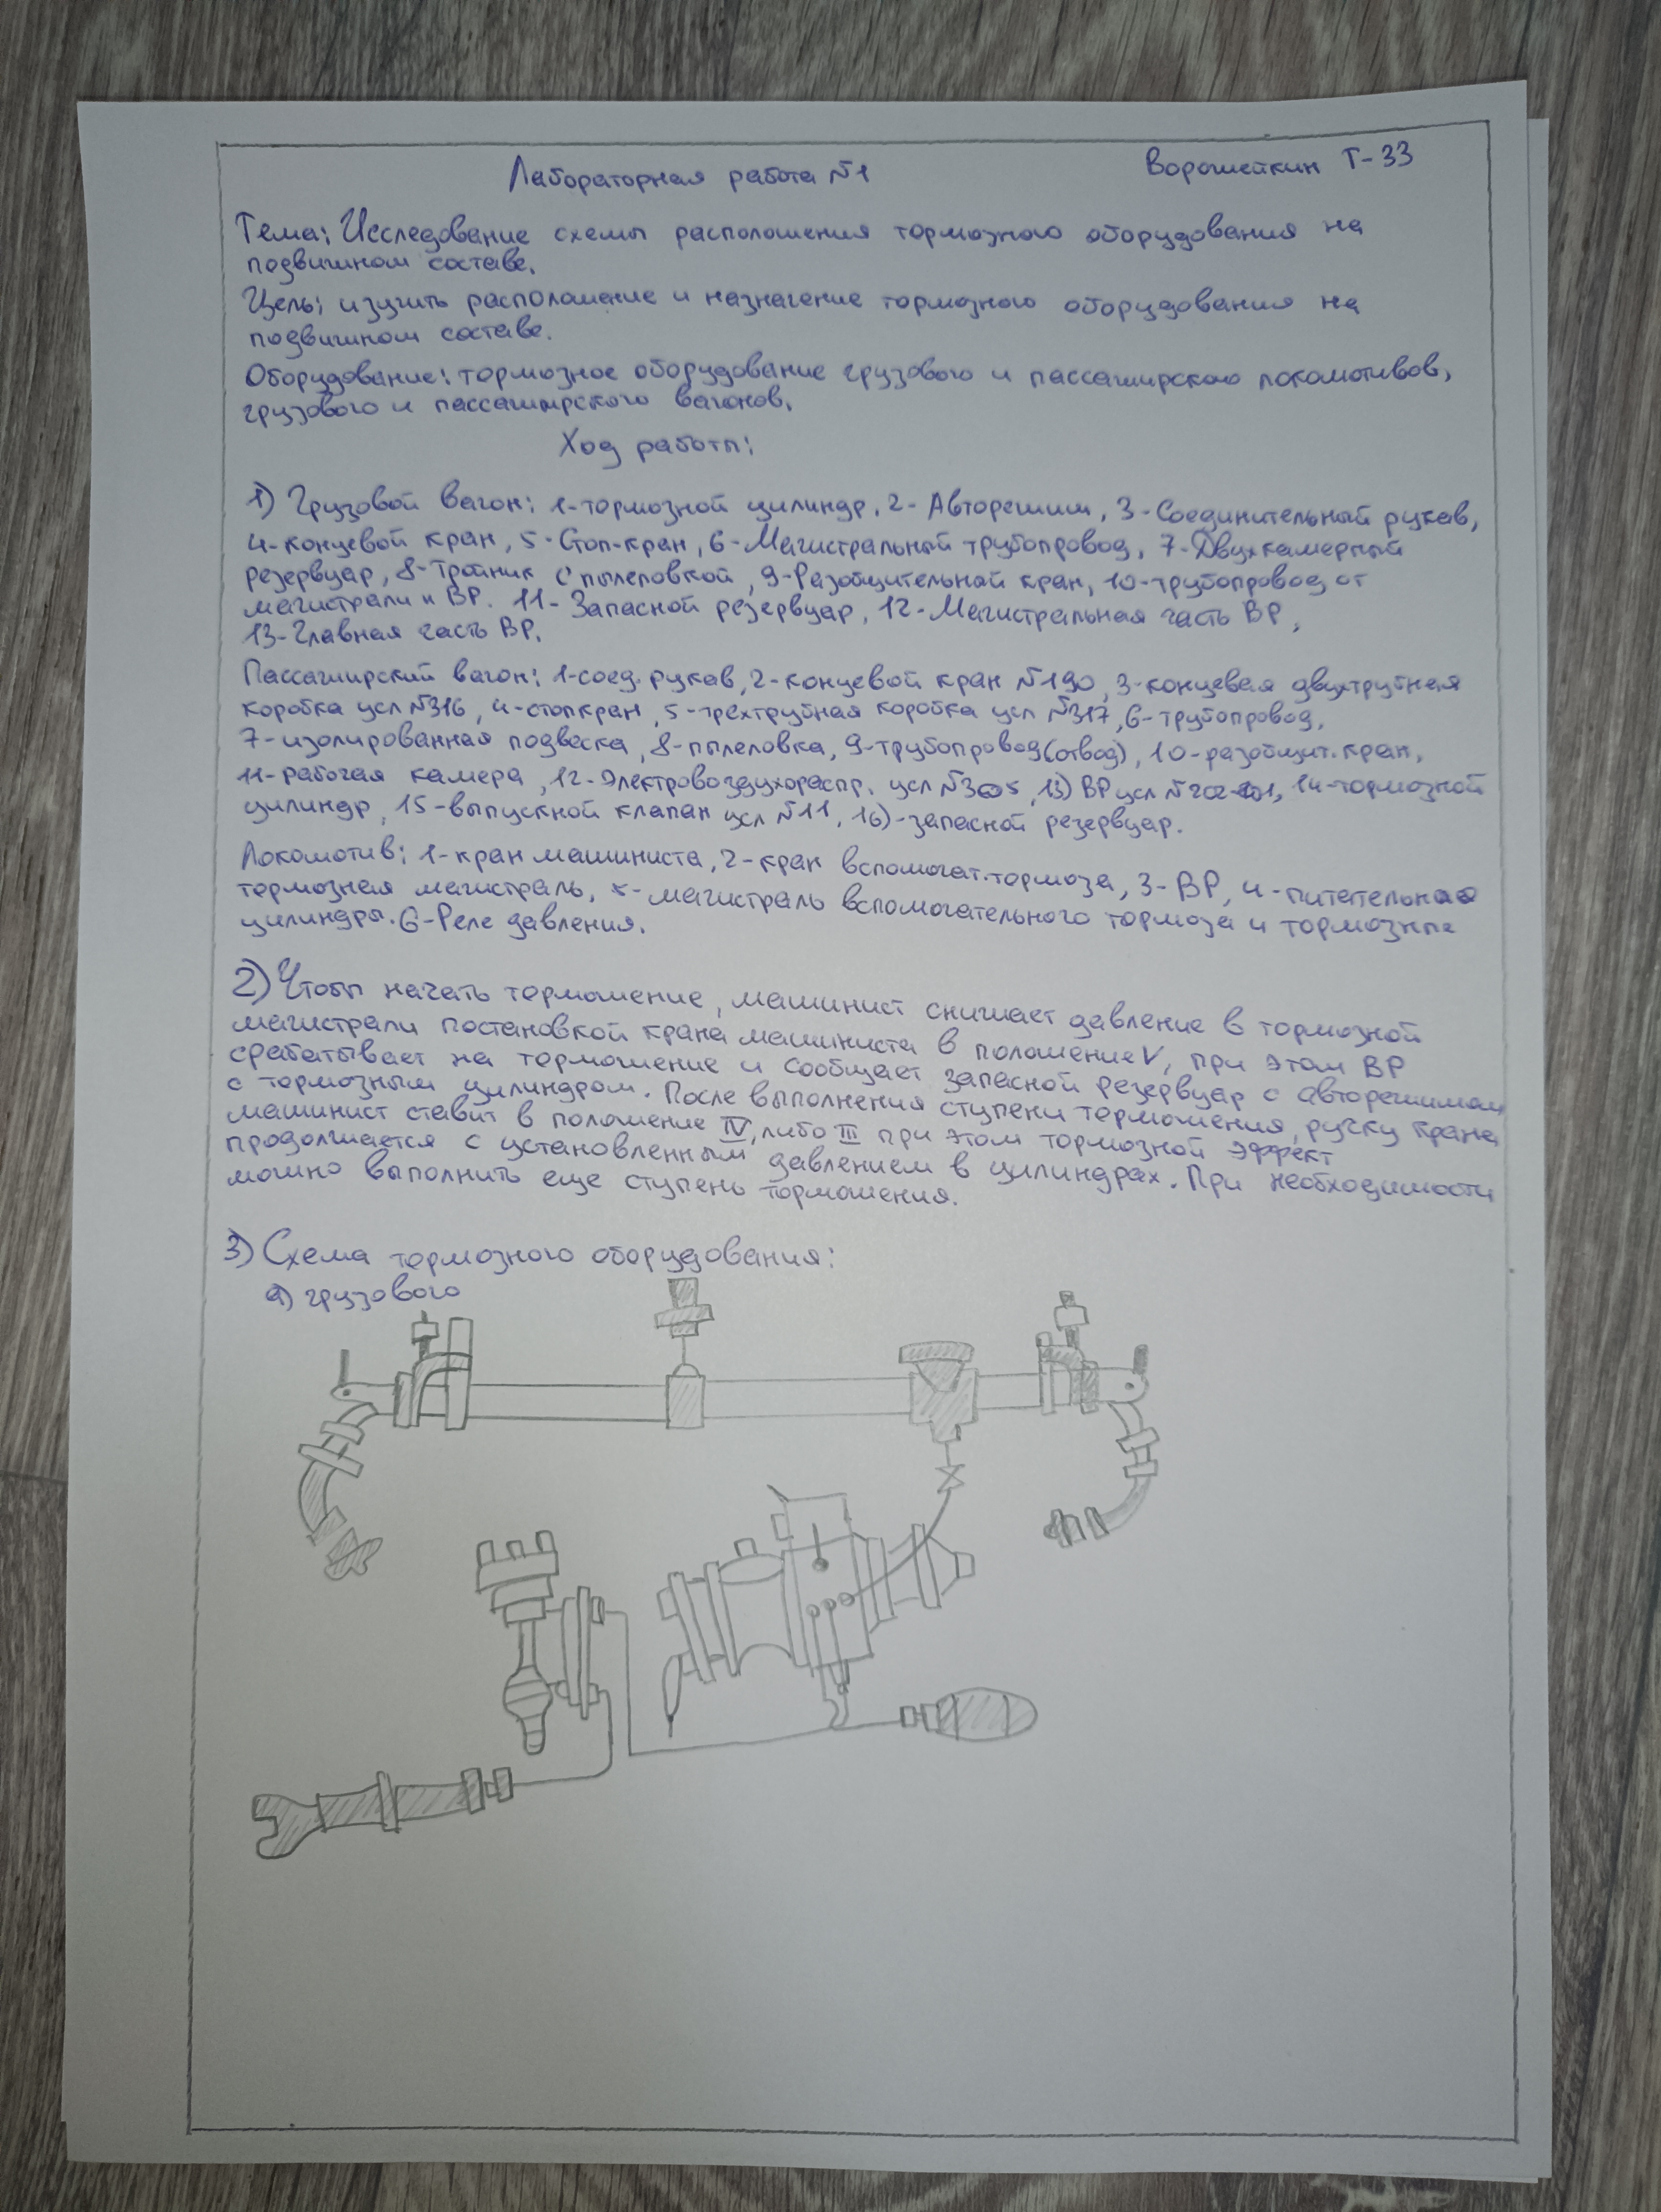 Лабораторная работа №1
Ворошейкин Т-33
Тема: Исследование схемы расположения тормозного оборудования на
подвижном составе.
Цель: изучить расположение и назначение тормозного оборудования на
подвижном составе.
Оборудование: тормозное оборудование грузового и пассажирского локомотивов,
грузового и пассажирского вагонов.
Ход работы:
1) Грузовой вагон: 1-тормозной цилиндр, 2-Авторежим, 3-Соединительный рукав,
4-концевой кран, 5-Стоп-кран, 6-Магистральный трубопровод, 7-Двухкамерный
резервуар, 8-Тройник с пылеловкой, 9-Разобщительный кран, 10-трубопровод от
магистрали к ВР. 11-Запасной резервуар, 12-Магистральная часть ВР,
13-Главная часть ВР.
Пассажирский вагон: 1-соед. рукав, 2-концевой кран №190, 3-концевая двухтрубная
коробка усл №316, 4-стопкран, 5-трёхтрубная коробка усл №317, 6-трубопровод,
7-изолированная подвеска, 8-пылеловка, 9-трубопровод(отвод), 10-разобщит. кран,
11-рабочая камера, 12-Электровоздухораспр. усл №305, 13) ВР усл № 14-тормозной
цилиндр, 15-выпускной клапан усл №11, 16)-запасной резервуар.
Локомотив: 1-кран машиниста, 2-кран вспомогат. тормоза, 3-ВР, 4-питательная
тормозная магистраль, 5-магистраль вспомогательного тормоза и тормозные
цилиндры. 6-Реле давления.
2) Чтобы начать торможение, машинист снижает давление в тормозной
магистрали постановкой крана машиниста в положение V, при этом ВР
срабатывает на торможение и сообщает запасной резервуар с авторежимом
с тормозным цилиндром. После выполнения ступени торможения, ручку крана
машинист ставит в положение IV, либо III при этом тормозной эффект
продолжается с установленным давлением в цилиндрах. При необходимости
можно выполнить еще ступень торможения.
3) Схема тормозного оборудования:
а) грузового